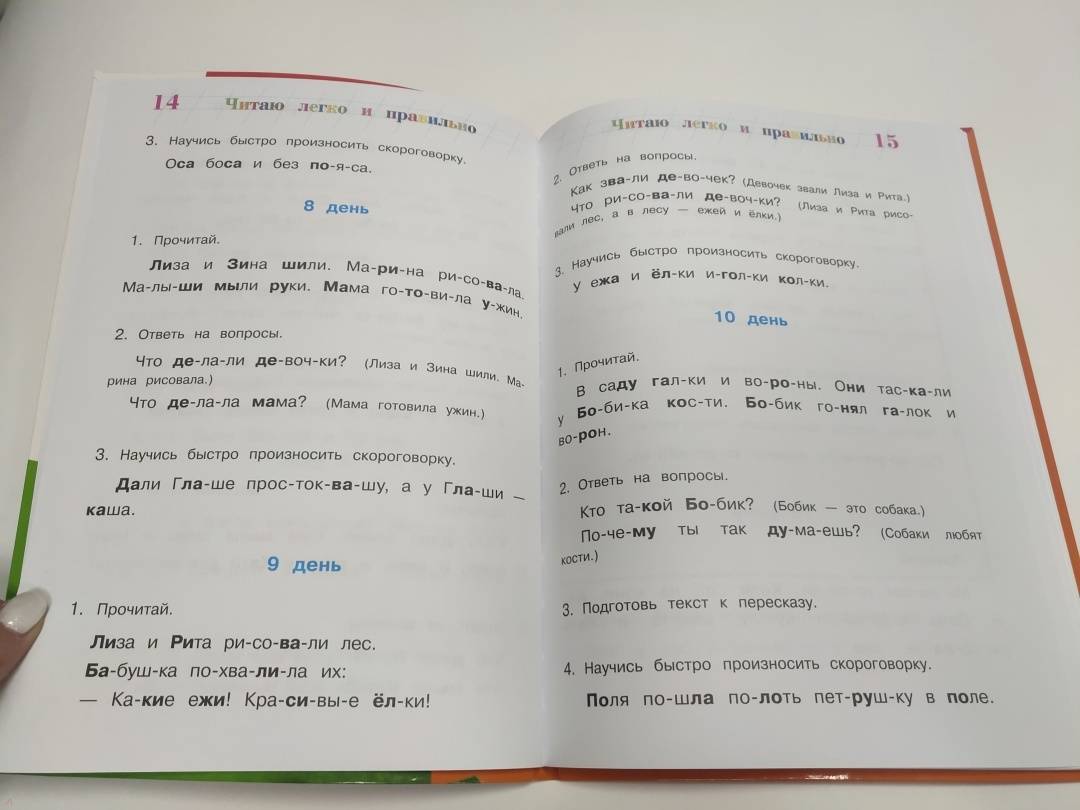 14 Читаю легко и правильно
3. Научись быстро произносить скороговорку.
Оса боса и без по-я-са.
8 день
1. Прочитай.
Лиза и Зина шили. Ма-ри-на ри-со-ва-ла.
Ма-лы-ши мыли руки. Мама го-то-ви-ла у-жин.
2. Ответь на вопросы.
Что де-ла-ли де-воч-ки? (Лиза и Зина шили. Ма-
рина рисовала.)
Что де-ла-ла мама? (Мама готовила ужин.)
3. Научись быстро произносить скороговорку.
Дали Гла-ше прос-ток-ва-шу, а у Гла-ши —
каша.
9 день
1. Прочитай.
Лиза и Рита ри-со-ва-ли лес.
Ба-буш-ка по-хва-ли-ла их:
— Ка-кие ежи! Кра-си-вы-е ёл-ки!
Читаю легко и правильно 15
2. Ответь на вопросы.
Как зва-ли де-во-чек? (Девочек звали Лиза и Рита.)
Что ри-со-ва-ли де-воч-ки? (Лиза и Рита рисо-
вали лес, а в лесу — ежей и ёлки.)
3. Научись быстро произносить скороговорку.
У ежа и ёл-ки и-гол-ки кол-ки.
10 день
1. Прочитай.
В саду гал-ки и во-ро-ны. Они тас-ка-ли
у Бо-би-ка кос-ти. Бо-бик го-нял га-лок и
во-рон.
2. Ответь на вопросы.
Кто та-кой Бо-бик? (Бобик — это собака.)
По-че-му ты так ду-ма-ешь? (Собаки любят
кости.)
3. Подготовь текст к пересказу.
4. Научись быстро произносить скороговорку.
Поля по-шла по-лоть пет-руш-ку в поле.